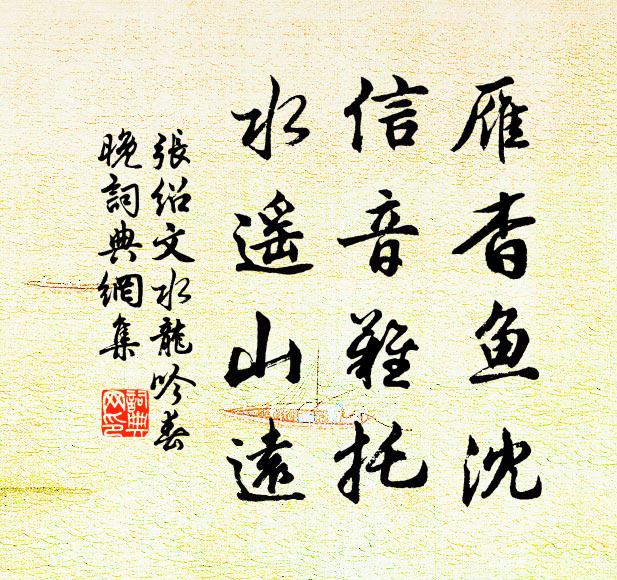 雁杳鱼沈
信音難托
水遥山远
張绍文水龍吟春
晚詞典網集
詞典
网印